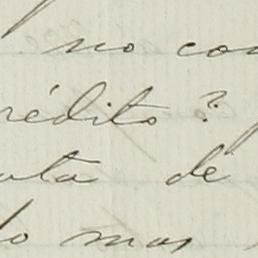 no con
rédito?
ata de
do mas